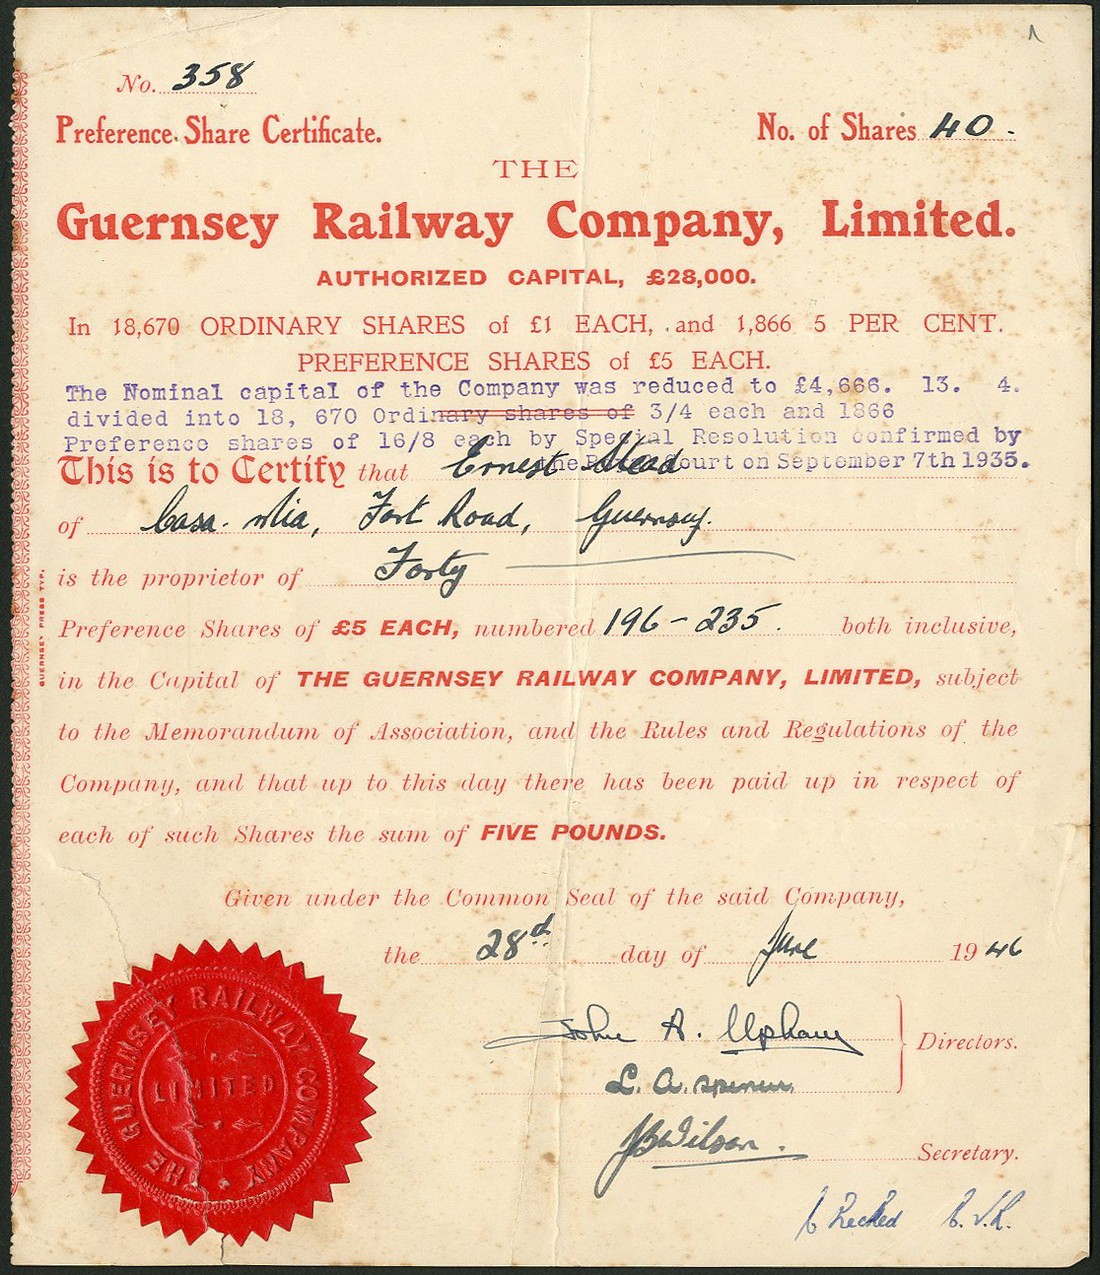 No. 358
Preference Share Certificate.
No. of Shares 40.
THE
Guernsey Railway Company, Limited.
AUTHORIZED CAPITAL, £28,000.
In 18,670 ORDINARY SHARES of £1 EACH, and 1,866 5 PER CENT.
PREFERENCE SHARES of £5 EACH.
The Nominal capital of the Company was reduced to £4,666. 13. 4.
divided into 18, 670 Ordinary shares of 3/4 each and 1866
Preference shares of 16/8 each by Special Resolution confirmed by
the Royal Court on September 7th 1935.
This is to Certify that Ernest Stead
of Casa Mia, Fort Road, Guernsey.
is the proprietor of Forty
Preference Shares of £5 EACH, numbered 196-235. both inclusive,
in the Capital of THE GUERNSEY RAILWAY COMPANY, LIMITED, subject
to the Memorandum of Association, and the Rules and Regulations of the
Company, and that up to this day there has been paid up in respect of
each of such Shares the sum of FIVE POUNDS.
Given under the Common Seal of the said Company,
the 28th day of June 1946
John A. Upham
Directors.
L. A.
J B Wilson.
Secretary.
Checked
GUERNSEY PRESS TYP.
THE GUERNSEY RAILWAY COMPANY
LIMITED